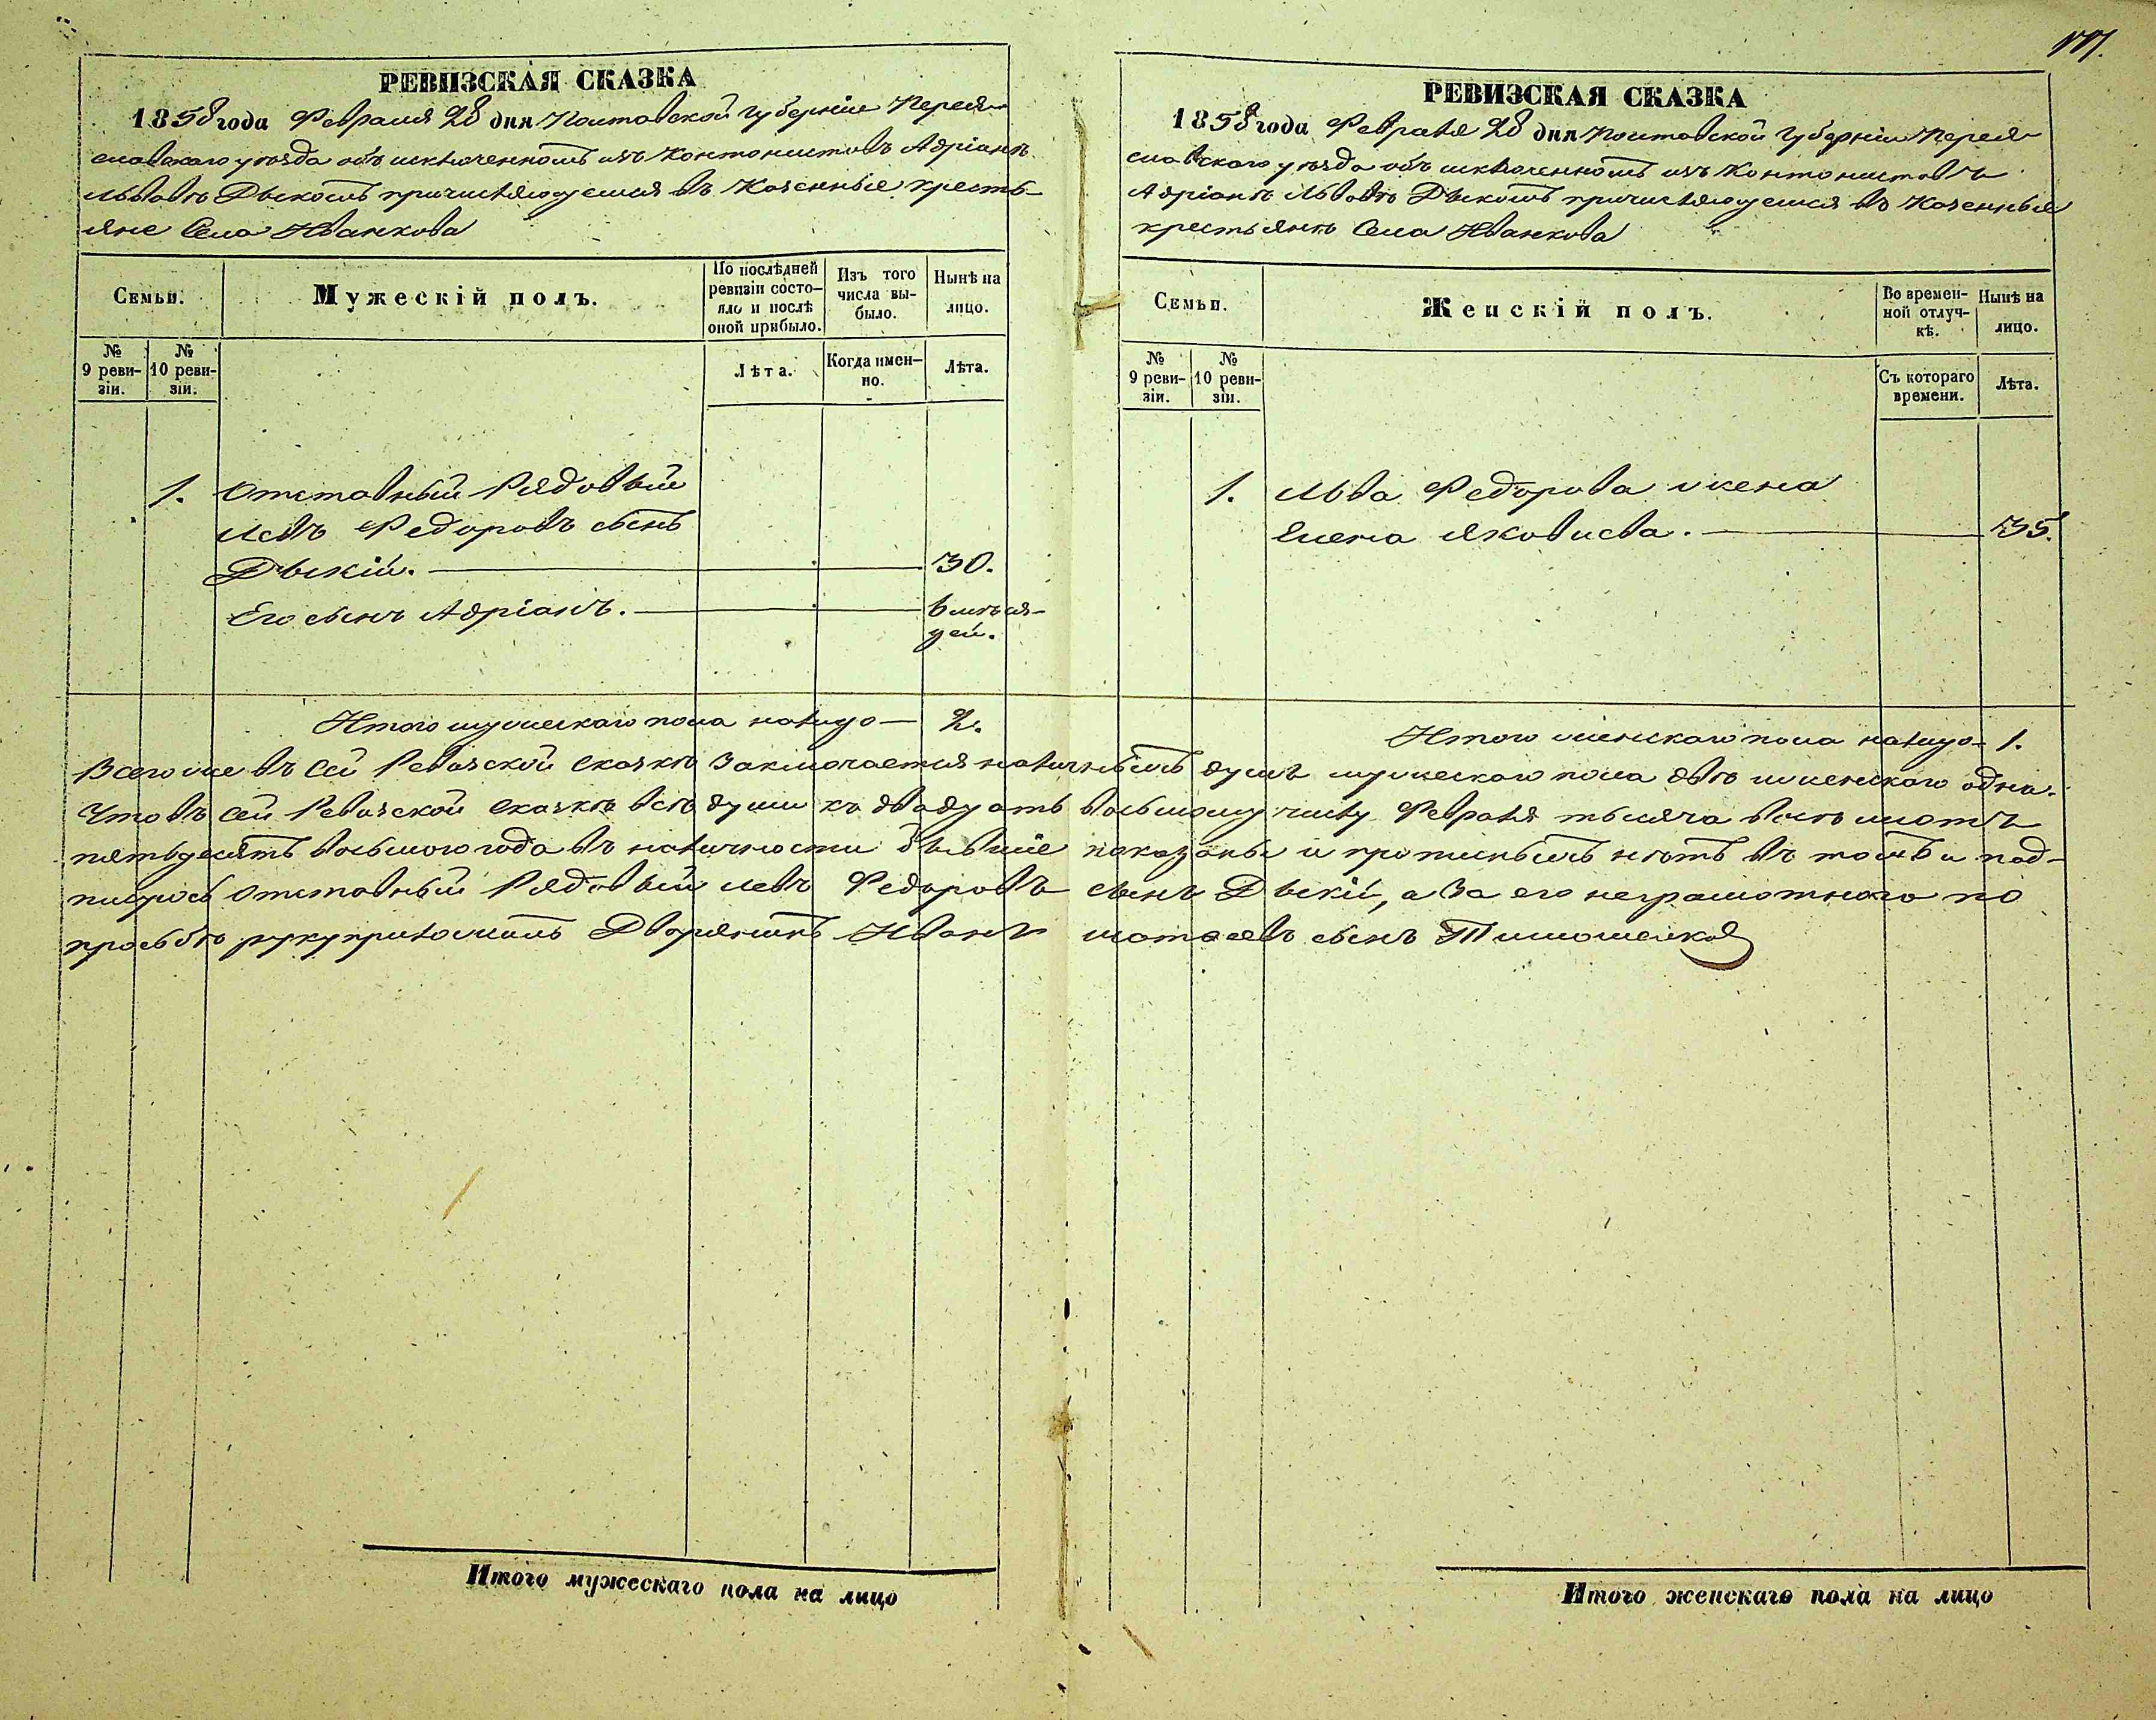 177.
РЕВИЗСКАЯ СКАЗКА
1858 года Февраля 28 дня Полтавской Губерніи Перея-
славскаго уѣзда объ исключенномъ изъ Кантонистовъ Адріанѣ
Львовѣ Дыкомъ причисляющемся въ Казенные кресть-
яне Села Иванкова
Семьи.
Мужескій полъ.
По послѣдней ревизіи состо-
яло и послѣ оной прибыло.
Изъ того числа вы-
было.
Нынѣ на лицо.
№ 9 реви-
зіи.
№ 10 реви-
зіи.
Лѣта.
Когда имен-
но.
Лѣта.
1. Отставный Рядовый
Левъ Федоровъ сынъ
Дыкій. 30.
Его сынъ Адріанъ. 6 мѣся-
цей.
Итого мужескаго пола налицо 2.
РЕВИЗСКАЯ СКАЗКА
1858 года Февраля 28 дня Полтавской Губерніи Перея-
славскаго уѣзда объ исключенномъ изъ Кантонистовъ
Адріанѣ Львовѣ Дыкомъ причисляющемся въ Казенные
крестьянѣ Села Иванкова
Семьи.
Женскій полъ.
Во времен-
ной отлуч-
кѣ.
Нынѣ на лицо.
№ 9 реви-
зіи.
№ 10 реви-
зіи.
Съ котораго времени.
Лѣта.
1. Льва Федорова жена
Елена Яковлева. 35.
Итого женскаго пола налицо 1.
Всего же въ сей Ревизской сказкѣ заключается наличныхъ душъ мужескаго пола двѣ и женскаго одна.
Что въ сей Ревизской сказкѣ всѣ души къ двадцать восьмому числу Февраля тысяча восемьсотъ
пятьдесятъ восьмого года въ наличности бывшіе показаны и прописныхъ нѣтъ въ томъ и под-
писуюсь отставный Рядовый Левъ Федоровъ сынъ Дыкій, а за его неграмотнаго по
просьбѣ руку приложилъ Дворянинъ Иванъ Матѳеевъ сынъ Тимошенков
Итого мужескаго пола на лицо
Итого женскаго пола на лицо